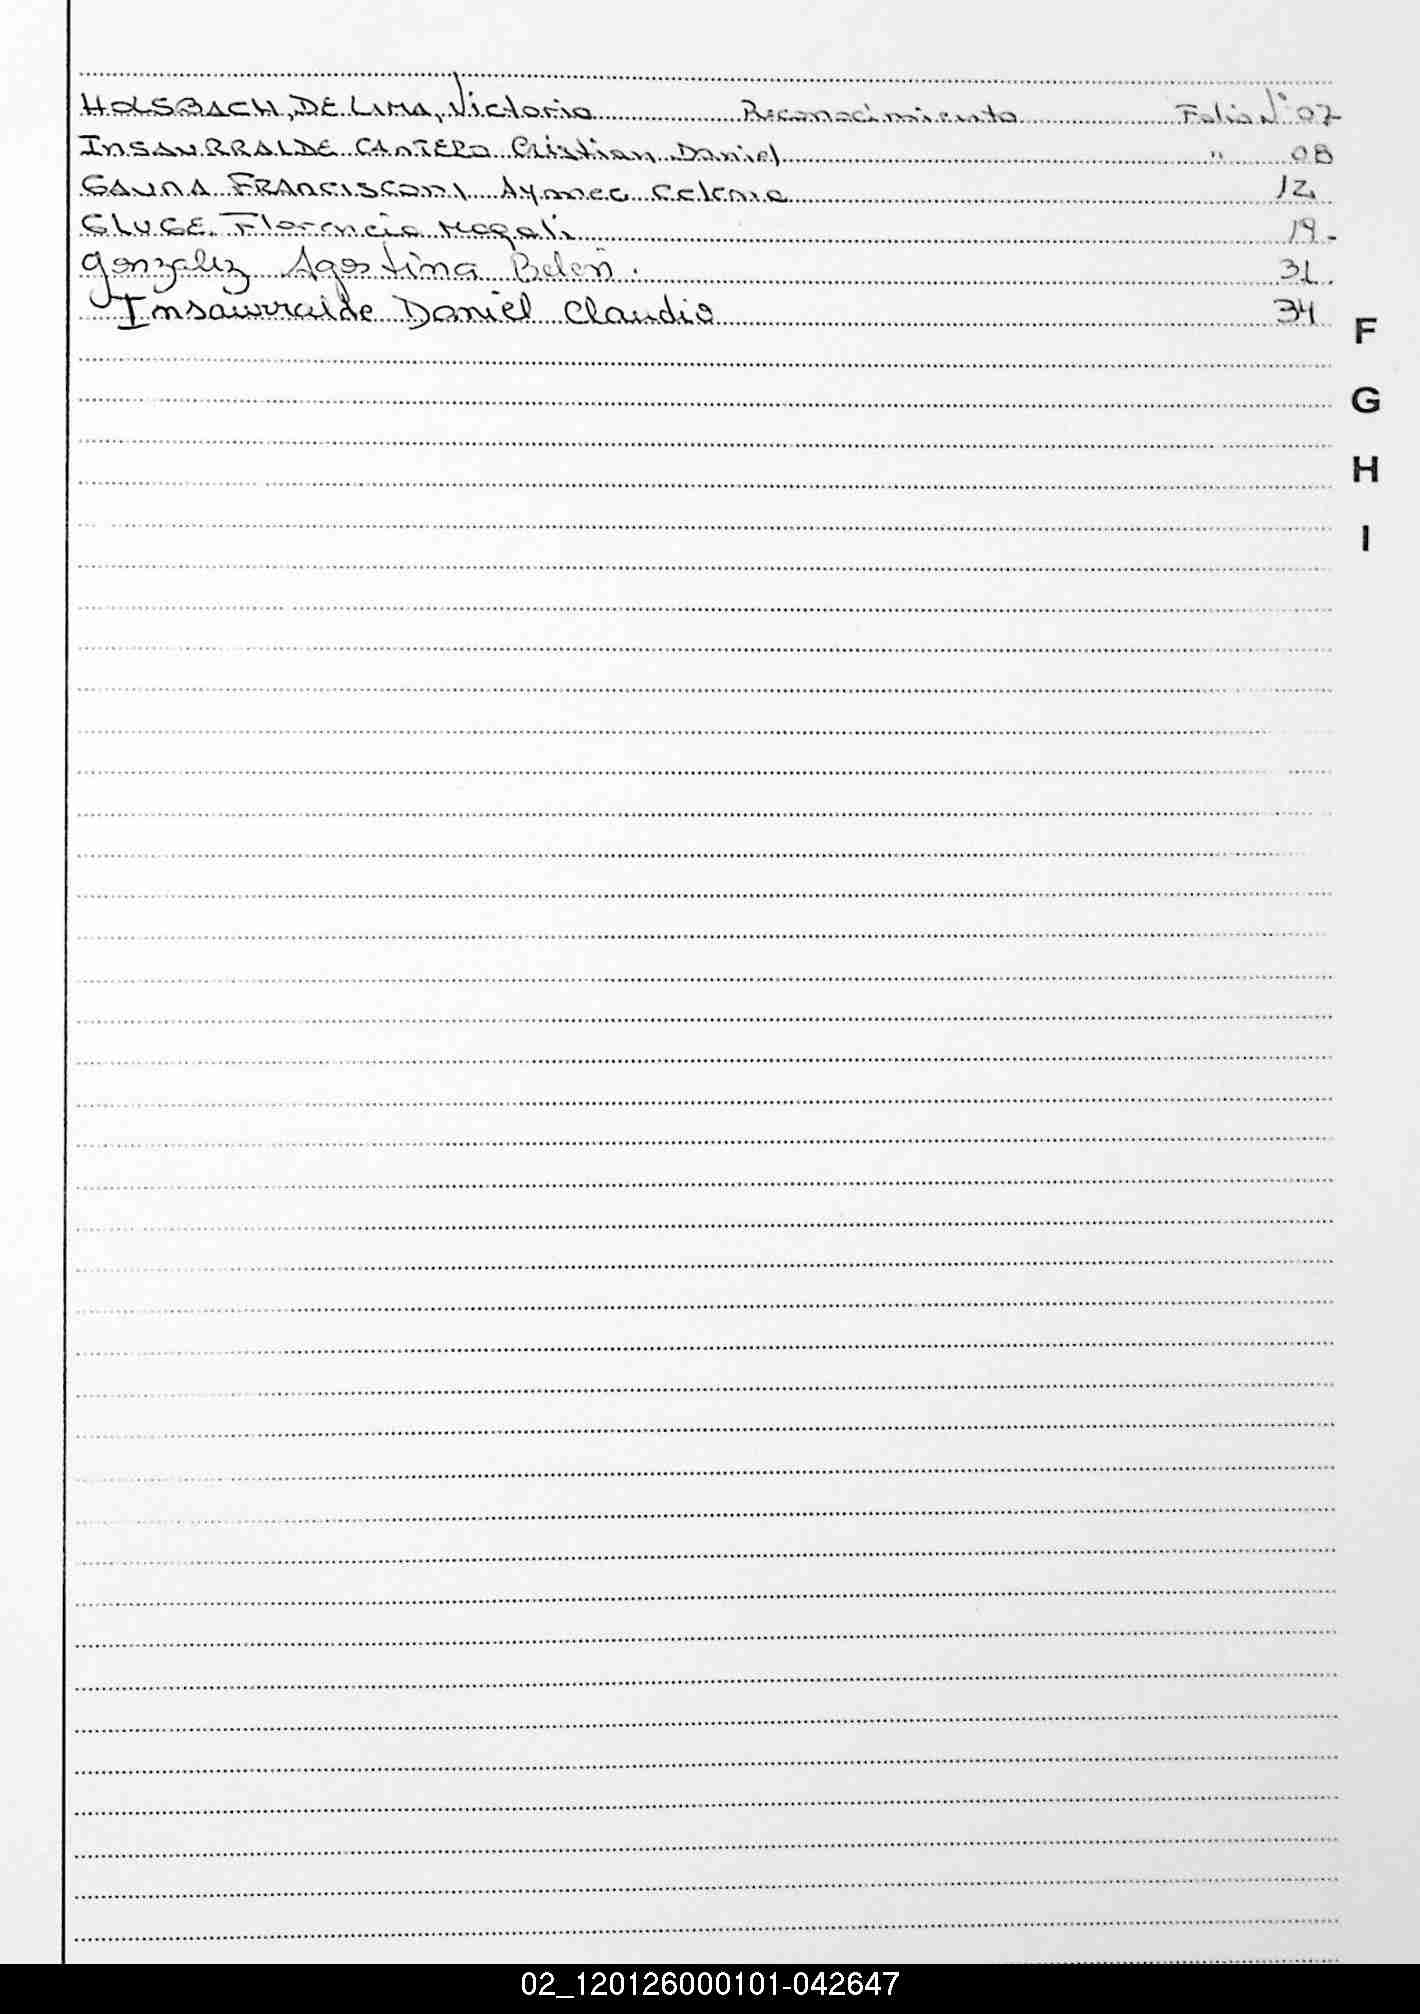 HOLSBACH, DE LIMA, Victoria Reconocimiento Folio N° 07
INSAURRALDE CANTERO Cristian Daniel " 08
GAUNA FRANCISCONI Aymee Celenia 12
GLUGE Florencia Magali 19-
Gonzalez Agostina Belén. 31.
Insaurralde Daniel Claudio 34
F
G
H
I
02_120126000101-042647